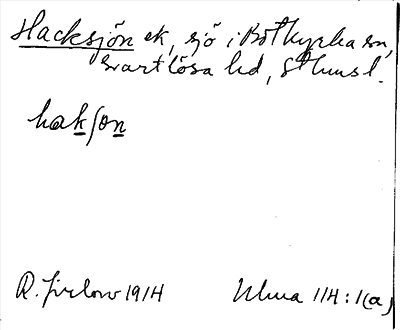 Hacksjön ek, sjö i Botkyrka sn,
Svartlösa hd, Sthmsl.
hakʃon
R. Jirlow 1914
Ulma 114:1(a)